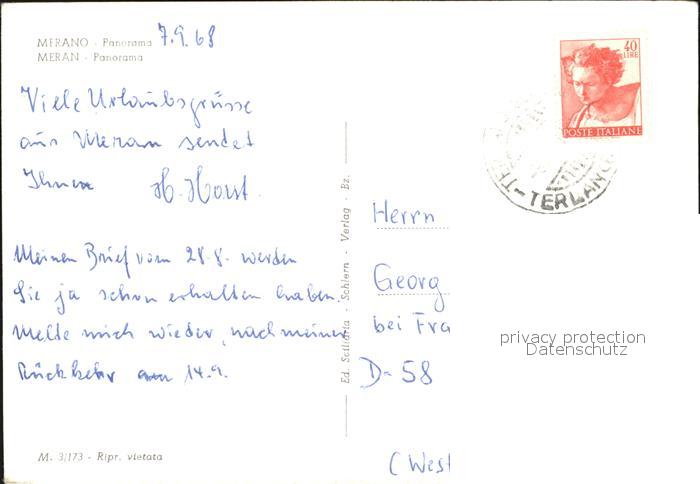 MERANO - Panorama 7.9.68
MERAN - Panorama
Viele Urlaubsgrüsse
aus Meran sendet
Ihnen H. Horst.
Meinen Brief vom 28.8. werden
Sie ja schon erhalten haben.
Melde mich wieder, nach meiner
Rückkehr am 14.9.
M. 3/173 - Ripr. vietata
Ed. Sciliaria - Schlern - Verlag - Bz.
40
LIRE
POSTE ITALIANE
TERLANO
Herrn
Georg
bei Fra
D-58
(West
privacy protection
Datenschutz